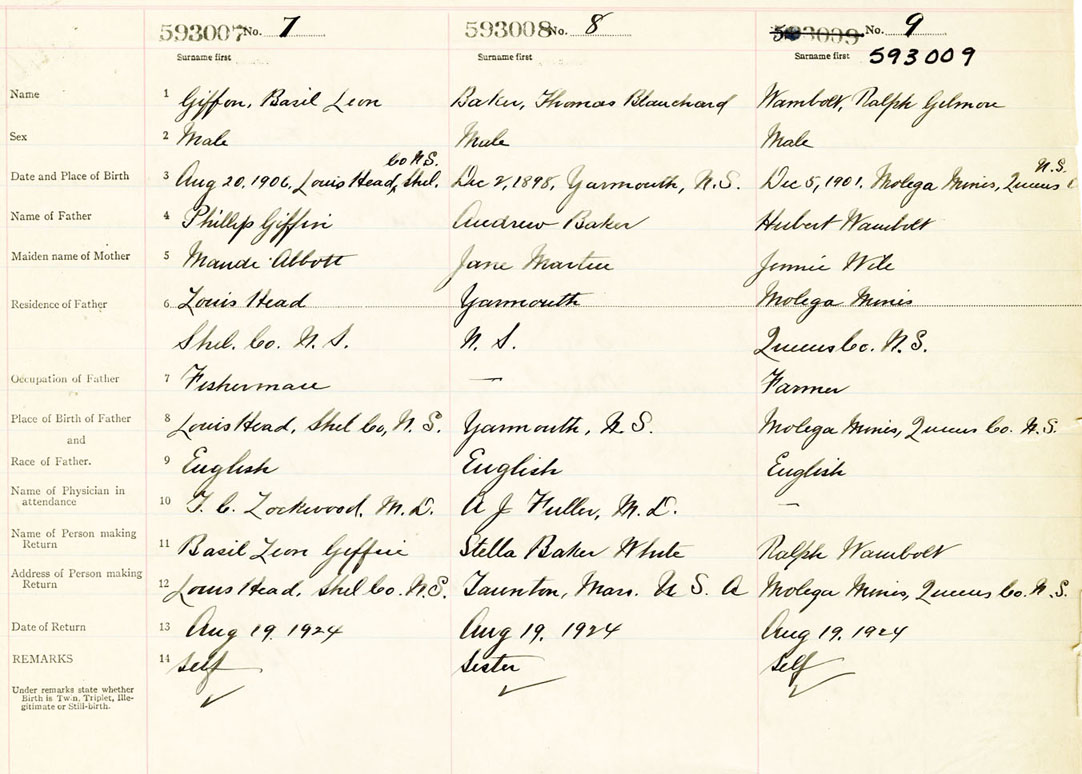 593007 No. 7 593008 No. 8 593009 No. 9
Surname first Surname first Surname first 593009
Name 1 Giffon, Basil Leon Baker, Thomas Blanchard Wambolt, Ralph Gilmore
Sex 2 Male Male Male
Co N.S. N.S.
Date and Place of Birth 3 Aug 20, 1906, Louis Head, Shel. Dec 2, 1898, Yarmouth, N.S. Dec 5, 1901. Molega Mines, Queens
Name of Father 4 Phillip Giffin Andrew Baker Hubert Wambolt
Maiden name of Mother 5 Maude Abbott Jane Martin Jennie Wile
Residence of Father 6 Louis Head Yarmouth Molega Mines
Shel. Co. N.S. N.S. Queens Co. N.S.
Occupation of Father 7 Fisherman — Farmer
Place of Birth of Father 8 Louis Head, Shel Co, N.S. Yarmouth, N.S. Molega Mines, Queens Co. N.S.
and
Race of Father. 9 English English English
Name of Physician in
attendance 10 T. C. Lockwood, M.D. A J Fuller, M.D. —
Name of Person making
Return 11 Basil Leon Giffin Stella Baker White Ralph Wambolt
Address of Person making
Return 12 Louis Head, Shel Co. N.S. Taunton, Mass. U S A Molega Mines, Queens Co. N.S.
Date of Return 13 Aug 19, 1924 Aug 19, 1924 Aug 19, 1924
REMARKS 14 Self Sister Self
Under remarks state whether
Birth is Twin, Triplet, Ille-
gitimate or Still-birth.